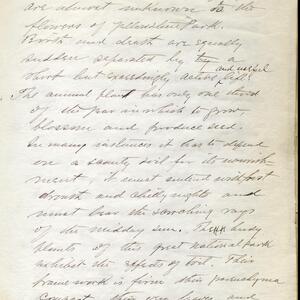 are almost unknown to the
flowers of Park.
Birth and death are equally
sudden separated by a
short but exceedingly active and useful life.
The annual plant has only one third
of the year in which to grow,
blossom and produce seed.
In many instances it has to depend
on a scanty soil for its nourish-
ment, it must contend with frost
drouth and chilly nights and
must bear the scorching rays
of the midday sun. The hardy
plants of this great national park
exhibit the effects of toil. Their
frame work is firm their parenchyma
compact, their leaves and